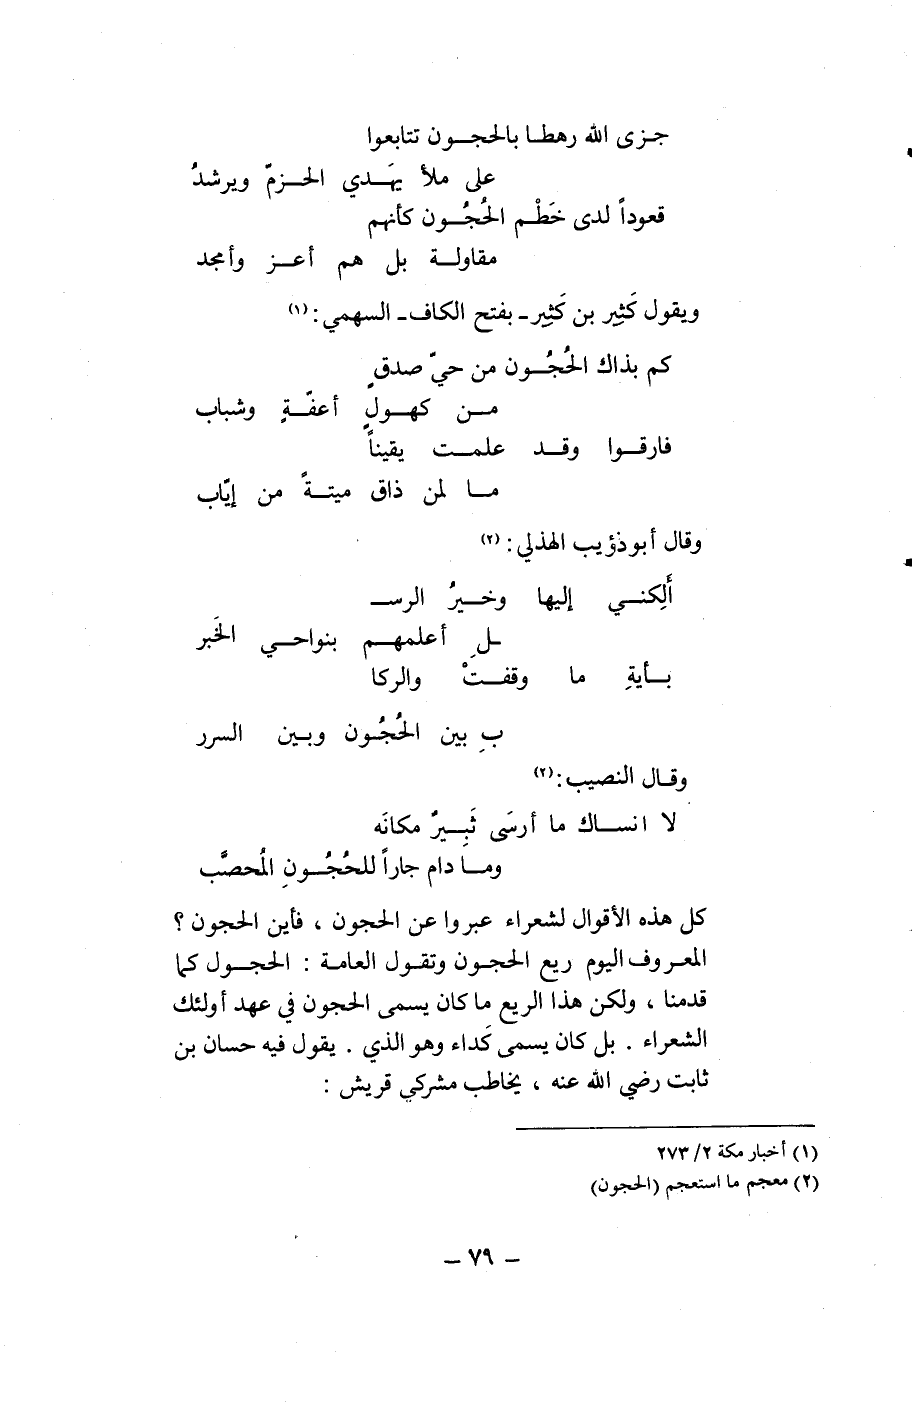 جزى الله رهطا بالحجون تتابعوا
على ملأ يهَدي الحزمّ ويرشدُ
قعوداً لدى خَطْم الحُجُون كأنهم
مقاولة بل هم أعز وأمجد
ويقول كَثِير بن كَثِير ـ بفتح الكاف ـ السهمي : (١)
كم بذاك الحُجُون من حيّ صدقٍ
من كهولٍ أعفّةٍ وشباب
فارقوا وقد علمت يقيناً
ما لمن ذاق ميتةً من إيّاب
وقال أبو ذؤيب الهذلي : (٢)
أَلِكني إليها وخيرُ الرسـ
ـلِ أعلمهم بنواحي الخَبر
بأيةِ ما وقفتْ والركا
بِ بين الحُجُون وبين السرر
وقال النصيب : (٢)
لا انساك ما أرسَى ثَبِيرٌ مكانَه
وما دام جاراً للحُجُونِ المُحصَّب
كل هذه الأقوال لشعراء عبروا عن الحجون ، فأين الحجون ؟
المعروف اليوم ريع الحجون وتقول العامة : الحجول كما
قدمنا ، ولكن هذا الريع ما كان يسمى الحجون في عهد أولئك
الشعراء . بل كان يسمى كَداء وهو الذي . يقول فيه حسان بن
ثابت رضي الله عنه ، يخاطب مشركي قريش :
(١) أخبار مكة ٢ / ٢٧٣
(٢) معجم ما استعجم (الحجون)
– ٧٩ –